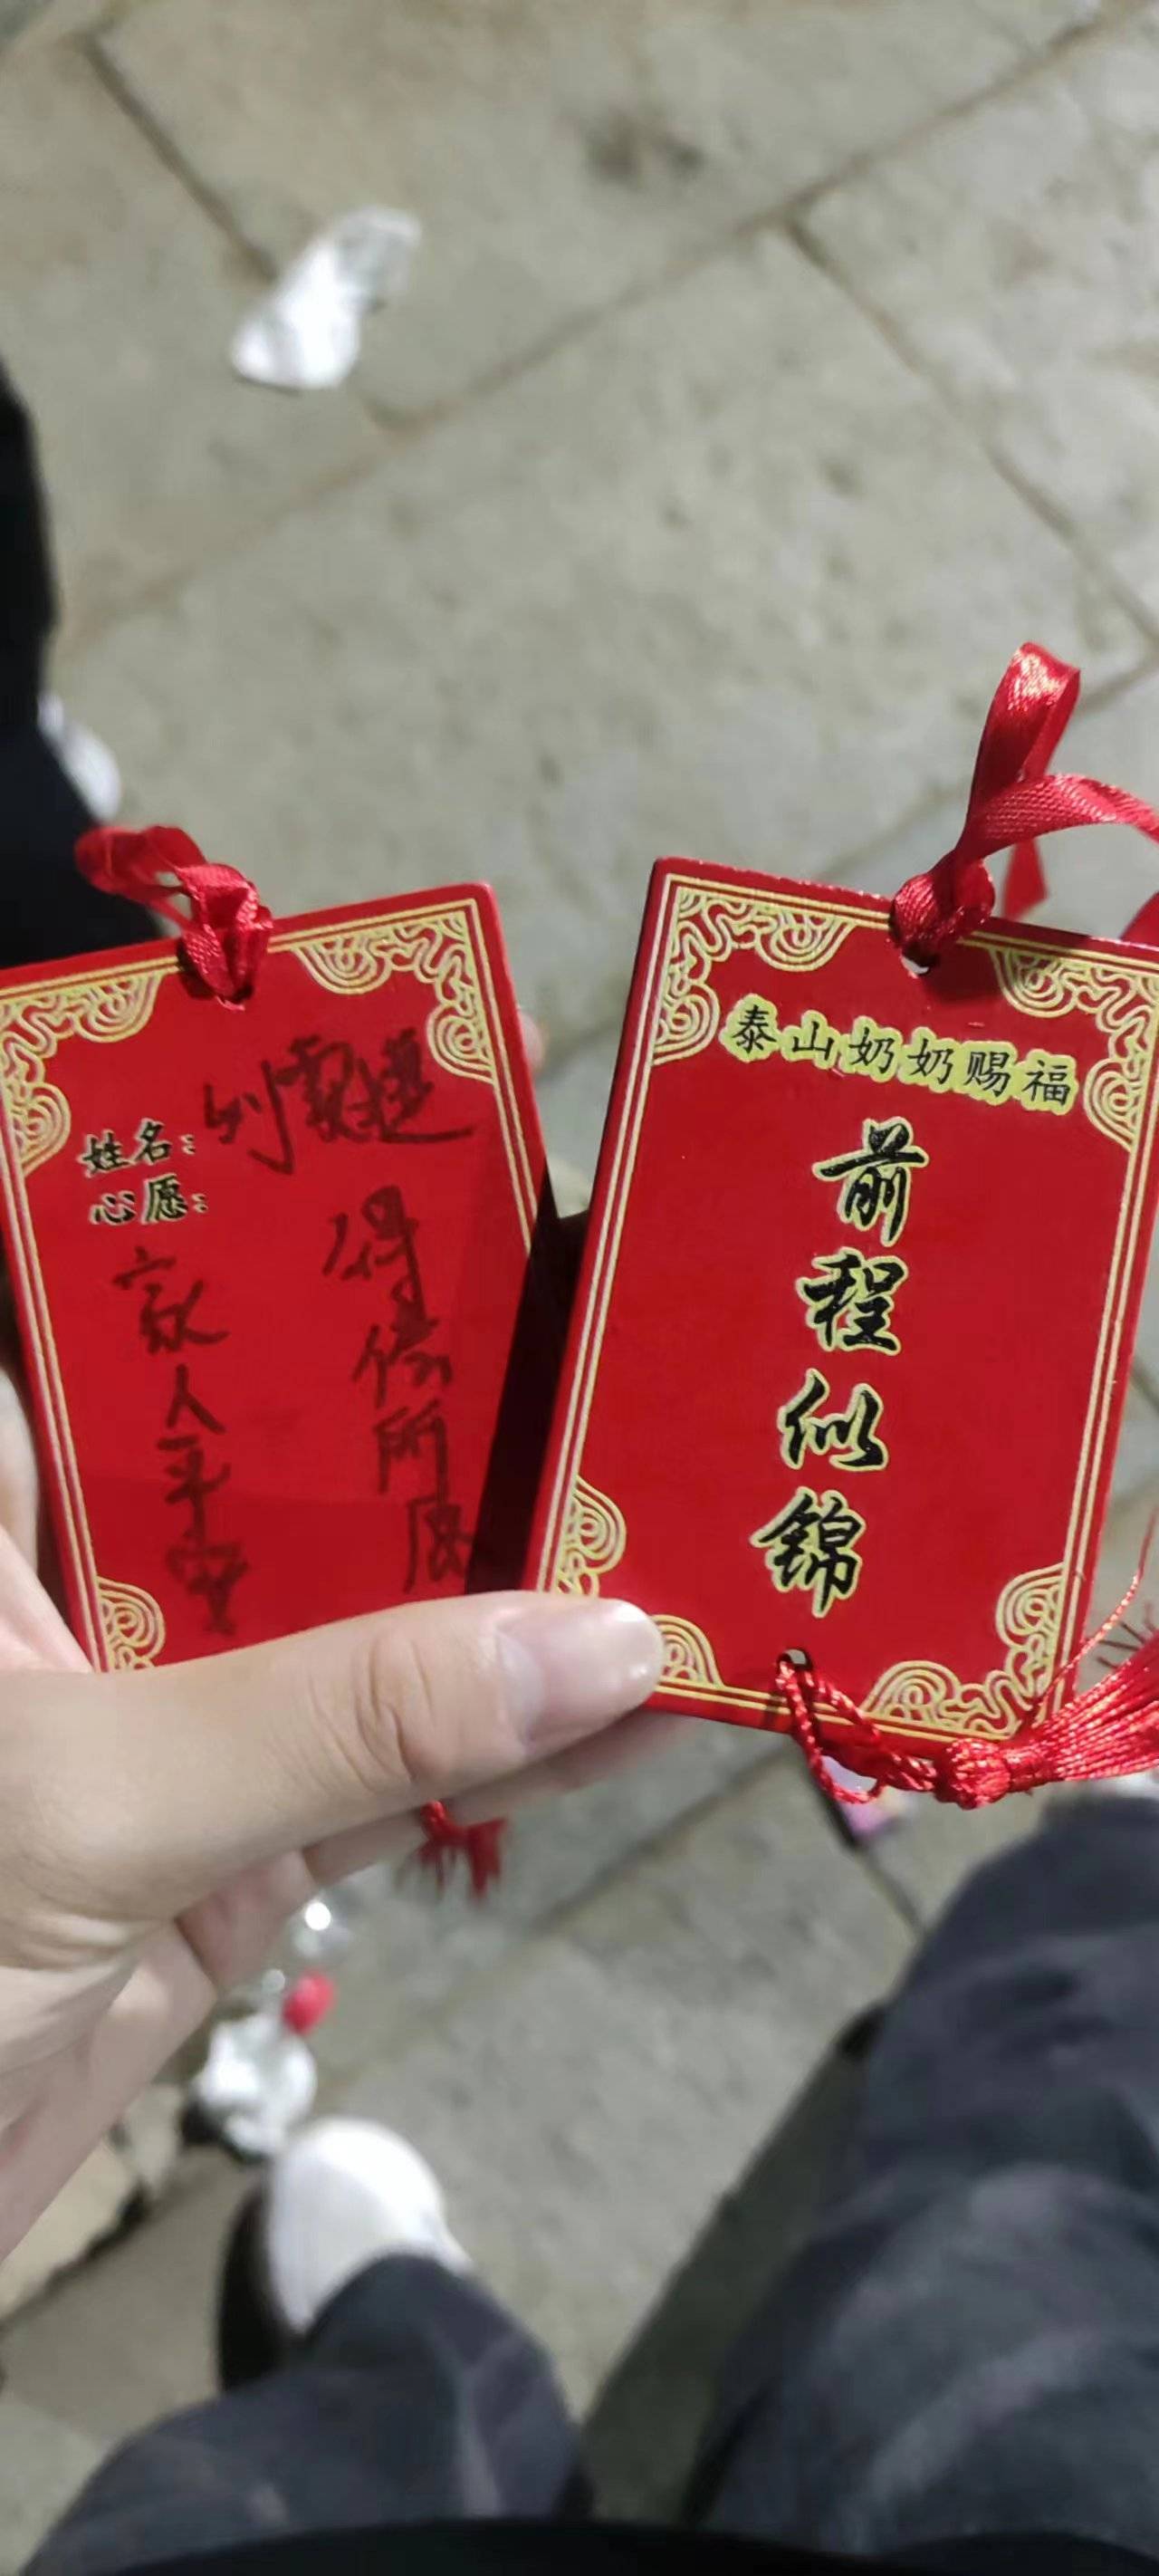 姓名：刘
心愿：
家人平安
得偿所愿
泰山奶奶赐福
前程似锦